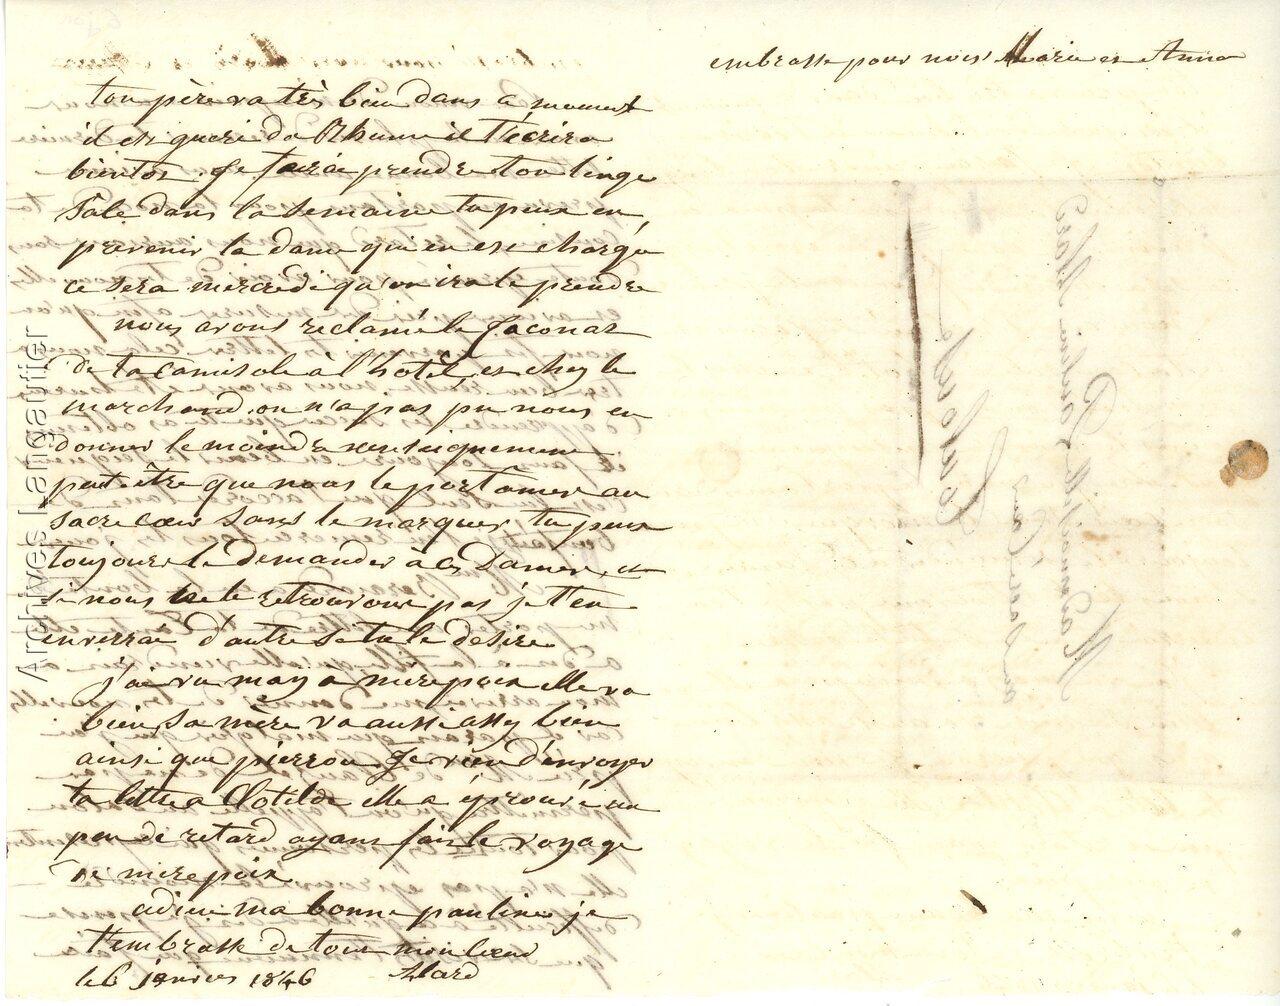 embrasse pour nous Maria et Anna
ton père va très bien dans ce moment
il est gueri du Rhume il t'écrira
bientot. Je fairai prendre ton linge
sale dans la semaine tu peux en
prevenir la dame qui en est chargée
ce sera mercredi qu'on ira le prendre
nous avons reclamé le Jaconat
de ta camisole à l'hotel, et chez le
marchand. on n'a pas pu nous en
donner le moindre renseignement
peut être que nous le portames au
sacre cœur sans le marquer, tu peux
toujours le demander à ces Dames, et
si nous ne le retrouvons pas je t'en
enverrai d'autre si tu le desire
j'ai vu à mirepoix elle va
bien sa mère va aussi assez bien
ainsi que pierrou. Je vien d'envoyer
ta lettre a Clotilde elle a éprouvé un
peu de retard ayant fait le voyage
de mirepoix
adieu ma bonne pauline, je
t'embrasse de tout mon cœur
le 6 janvier 1846 Alard
Mademoiselle Pauline Alard
au Sacré Cœur
Toulouse
Archives Langautier